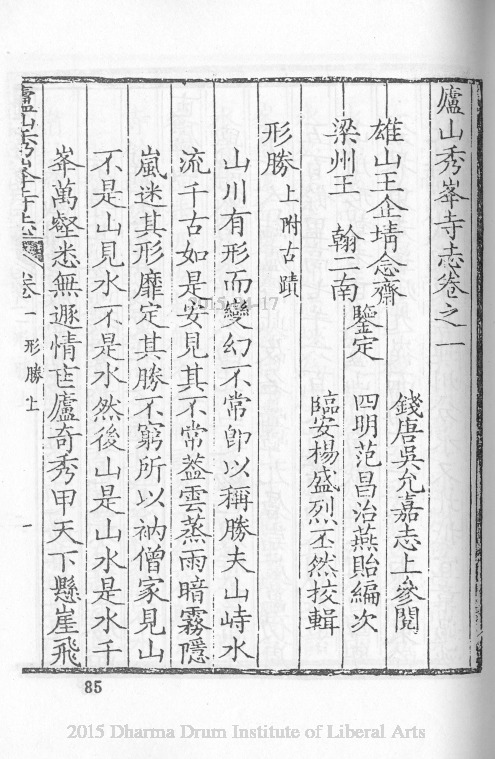 廬山秀峯寺志卷之一
雄山王企埥念齋
梁州王　翰二南
鑒定
錢唐吳允嘉志上參閱
四明范昌治燕貽編次
臨安楊盛烈丕然挍輯
形勝上附古蹟
山川有形而變幻不常卽以稱勝夫山峙水
流千古如是安見其不常葢雲蒸雨暗霧隱
嵐迷其形靡定其勝不窮所以衲僧家見山
不是山見水不是水然後山是山水是水千
峯萬壑悉無遯情匡廬奇秀甲天下懸崖飛
廬山秀峯寺志
卷一 形勝上 一
2015-11-17
85
2015 Dharma Drum Institute of Liberal Arts